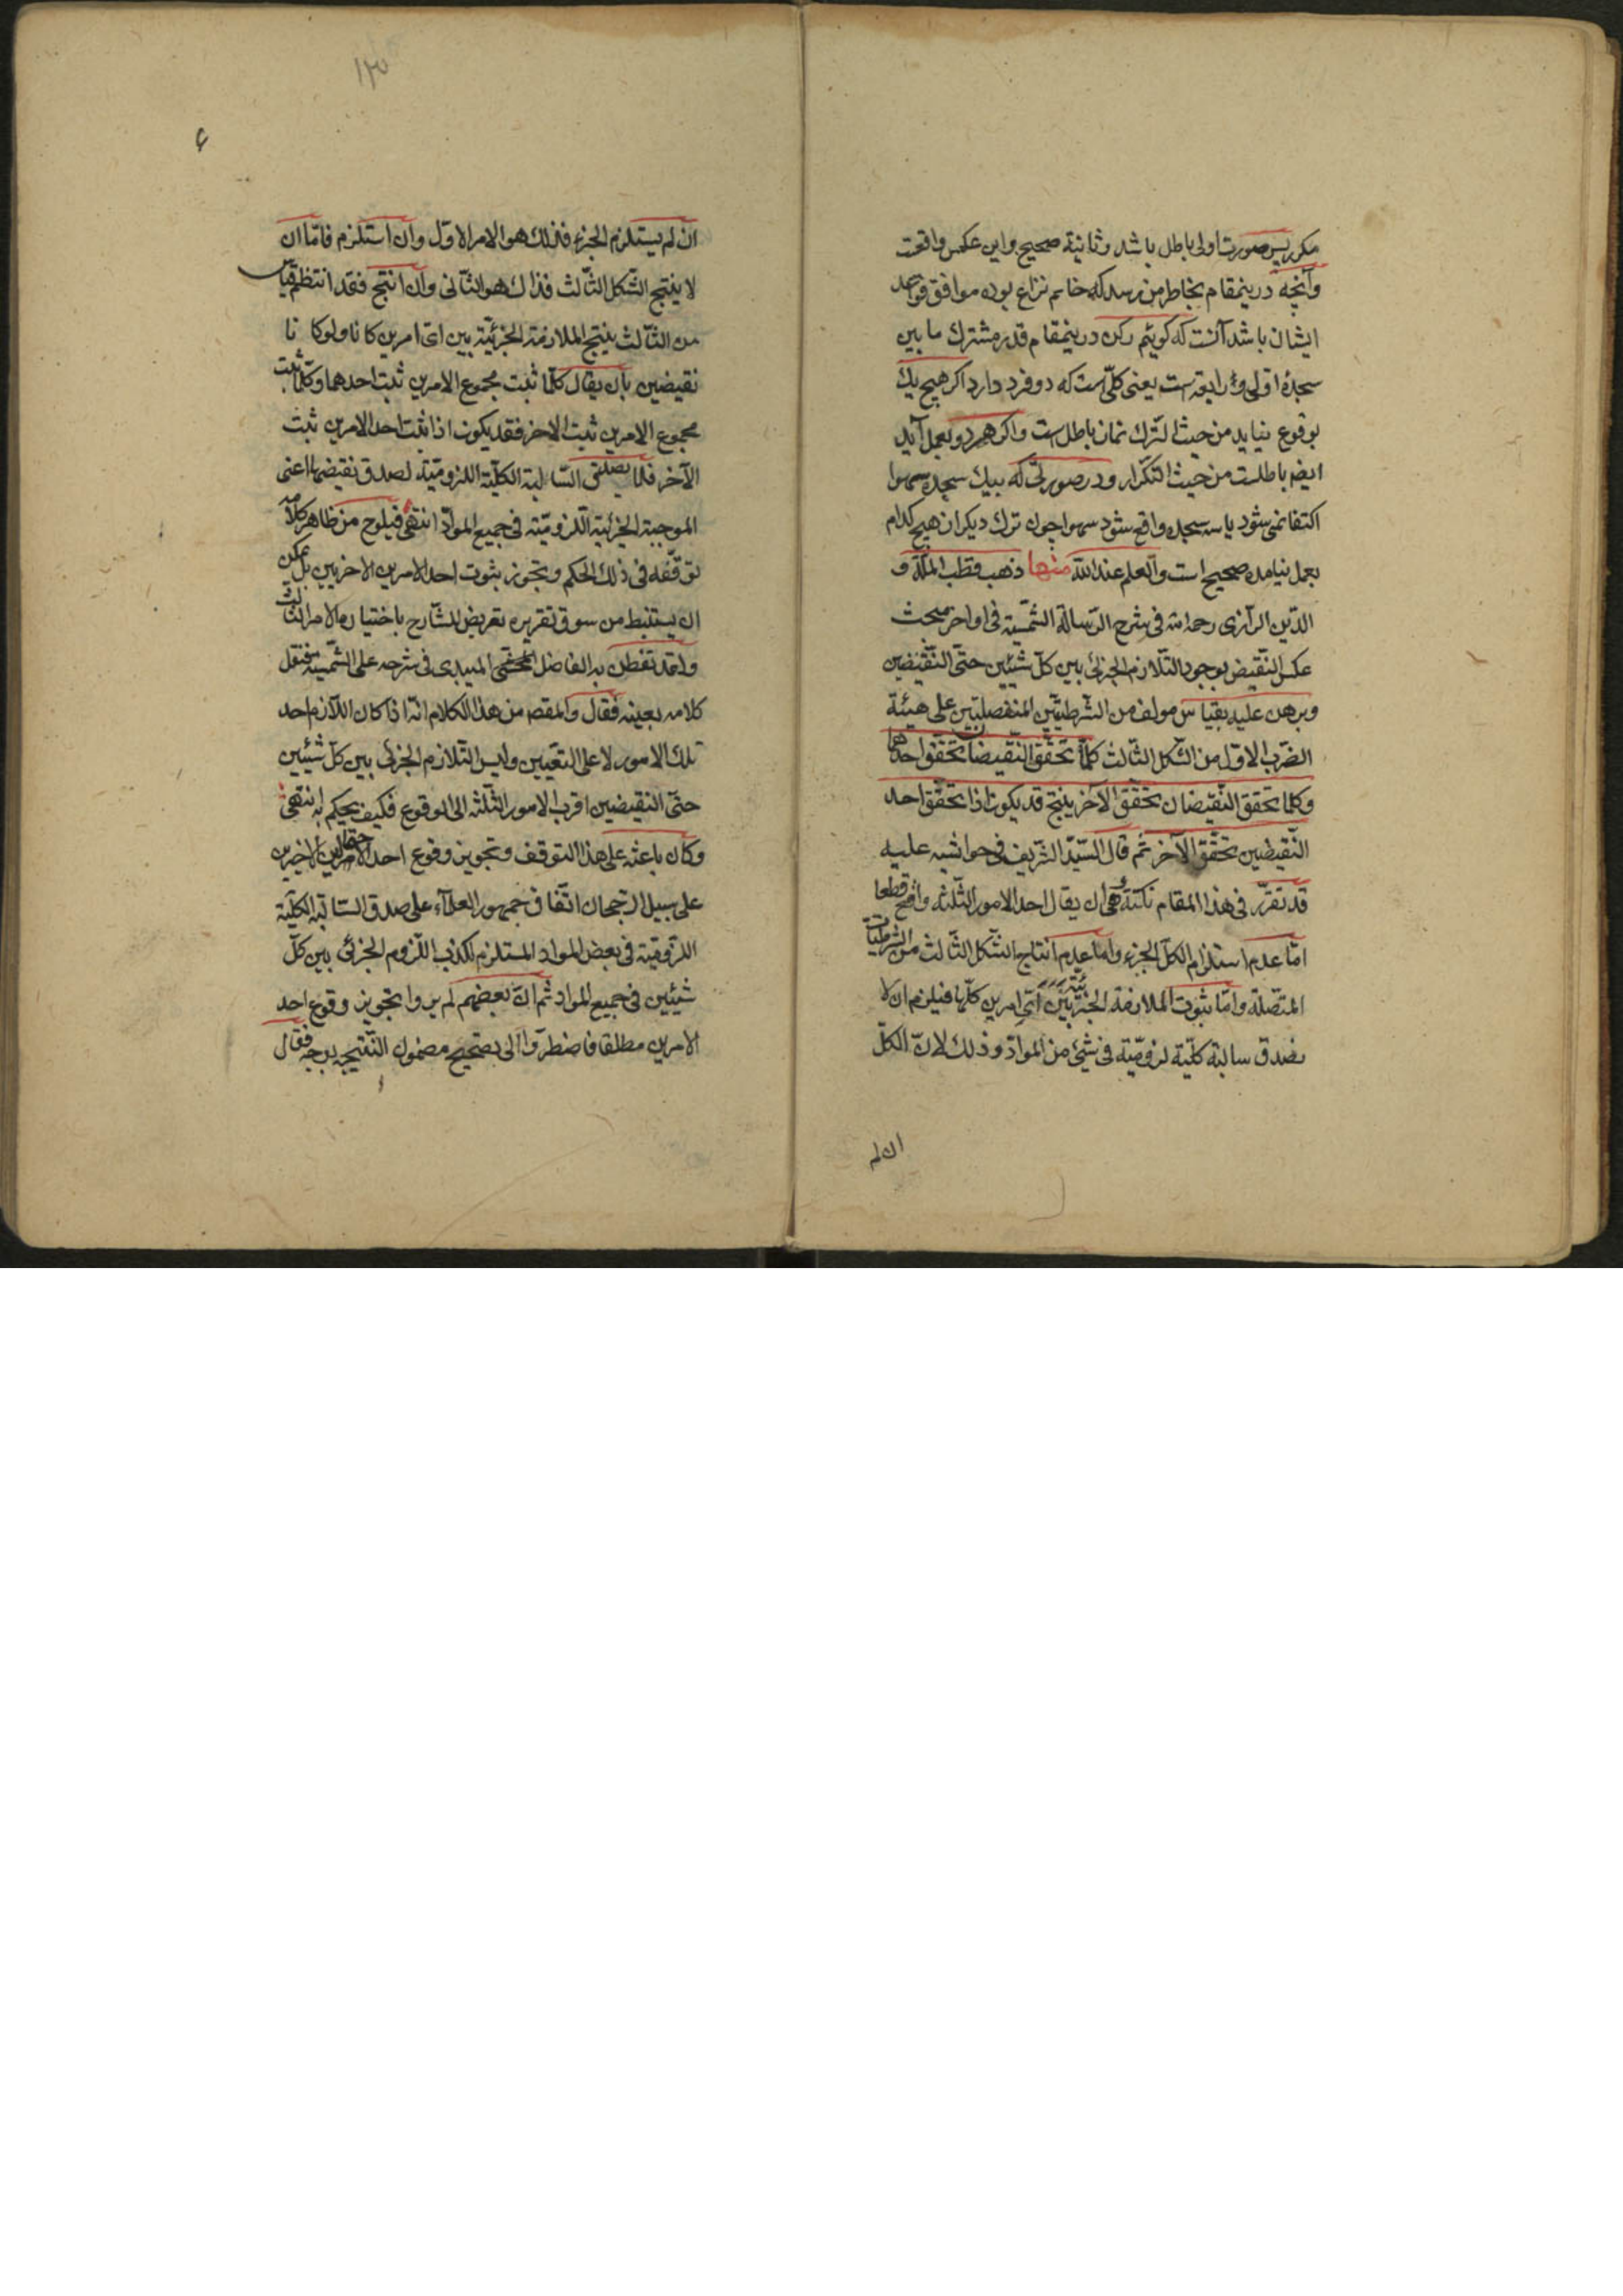 مكرر پس صورت اولى باطل باشد وثانية صحيح واين عكس واقعست
وآنچه درينمقام بخاطر من رسد كه خاسم نزاع بوده موافق قواعد
ايشان باشد آنست كه كوئيم ركن درينمقام قدر مشترك ما بين
سجدۀ اولى و است يعنى كلّى است كه دو فرد دارد اكر هيچ يك
بوقوع نيايد من حيث الترك نماز باطل است واكر هر دو بعمل آيد
ايضم باطلست من حيث التكرار ودر صورتى كه بيك سجده سهوا
اكتفا نمى شود يا سه سجده واقع شود سهوا چون ترك ديكران هيچ كدام
بعمل نيامده صحيح است والعلم عند الله منها ذهب قطب الملّة و
الدّين الرّازى رحمه الله فى شرح الرّسالة الشمسيّة فى اواخر مبحث
عكس النّقيض بوجود التّلازم الجزئى بين كلّ شيئين حتّى النّقيضين
وبرهن عليه بقياس مولف من الشرطيّتين المنفصلتين على هيئة
الضّرب الاوّل من الشكل الثّالث كلّما تحقّق النّقيضان تحقّق احدهما
وكلما تحقق النّقيضان تحقّق الآخر ينتج قد يكون اذا تحقّق احد
النّقيضين تحقّق الآخر ثم قال السّيّد الشّريف فى حواشيه عليه
قد تقرّر فى هذا المقام نكتة وهى ان يقال احد الامور الثّلثه واقع قطعا
امّا عدم استلزام الكلّ الجزء وامّا عدم انتاج الشّكل الثّالث من الشرطيات
المتّصلة وامّا ثبوت الملازمة الجزئية بين اىّ امرين كلّها فيلزم ان لا
يصدق سالبة كلّية لزوميّة فى شئ من الموادّ وذلك لانّ الكلّ
ان لم
١٢٥
٤
ان لم يستلزم الجزء فذلك هو الامر الاوّل وان استلزم فامّا ان
لا ينتج الشّكل الثّالث فذاك هو الثّانى وان انتج فقد انتظم قياس
من الثّالث ينتج الملازمة الجزئيّة بين اىّ امرين كانا ولو كانا
نقيضين بان يقال كلّما ثبت مجموع الامرين ثبت احدهما وكلّما ثبت
مجموع الامرين ثبت الاخر فقد يكون اذا ثبت احد الامرين ثبت
الآخر فلا يصدق السّالبة الكلّية اللزوميّة لصدق نقيضها اعنى
الموجبة الجزئية اللّزوميّة فى جميع الموادّ انتهى فيلوح من ظاهر كلامه
توقّفه فى ذلك الحكم وتجوّز بثبوت احد الامرين الاخريين بل يمكن
ان يستنبط من سوق تقريره تعريض للشّارح باختياره الامر الثالث
ولقد تفطن به الفاضل المحشّى الميبدى فى شرحه على الشّمسيّة فنقل
كلامه بعينه فقال والمقصم من هذا الكلام انّه اذا كان اللّازم احد
تلك الامور لا على التعيين وليس التّلازم الجزئى بين كلّ شيئين
حتّى النقيضين اقرب الامور الثّلثه الى الوقوع فكيف يحكم به انتهى
وكان باعثه على هذا التوقف وتجويز وقوع احد الاحتمالين الاخيرين
على سبيل الرّجحان اتّفاق جمهور العلمآء على صدق السّالبة الكلّية
اللّزوميّة فى بعض المواد المستلزم لكذب اللّزوم الجزئى بين كلّ
شيئين فى جميع المواد ثم انّ بعضهم لم يروا تجويز وقوع احد
الامرين مطلقا فاضطرّوا الى تصحيح مضمون النّتيجه بوجه فقال